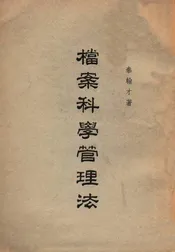 檔案科學管理法
秦翰才著